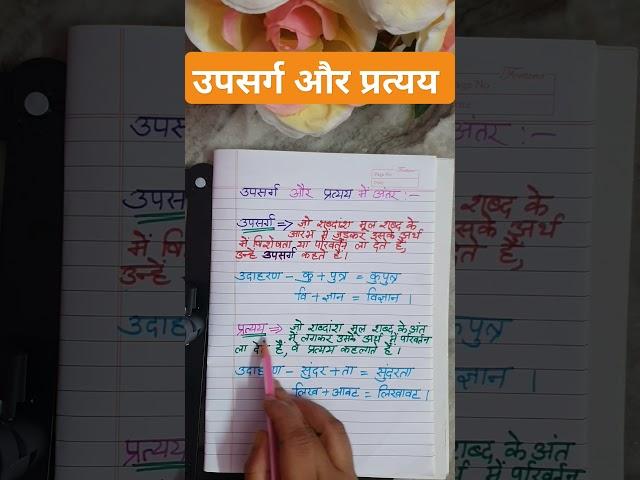 उपसर्ग और प्रत्यय
उपसर्ग और प्रत्यय में अंतर :-
उपसर्ग => जो शब्दांश मूल शब्द के
आरंभ में जुड़कर इसके अर्थ
में विशेषता या परिवर्तन ला देते हैं,
उन्हें उपसर्ग कहते हैं।
उदाहरण - कु + पुत्र = कुपुत्र
वि + ज्ञान = विज्ञान ।
प्रत्यय => जो शब्दांश मूल शब्द के अंत
में लगकर उसके अर्थ में परिवर्तन
ला देते हैं, वे प्रत्यय कहलाते हैं।
उदाहरण - सुंदर + ता = सुंदरता
लिख + आवट = लिखावट ।